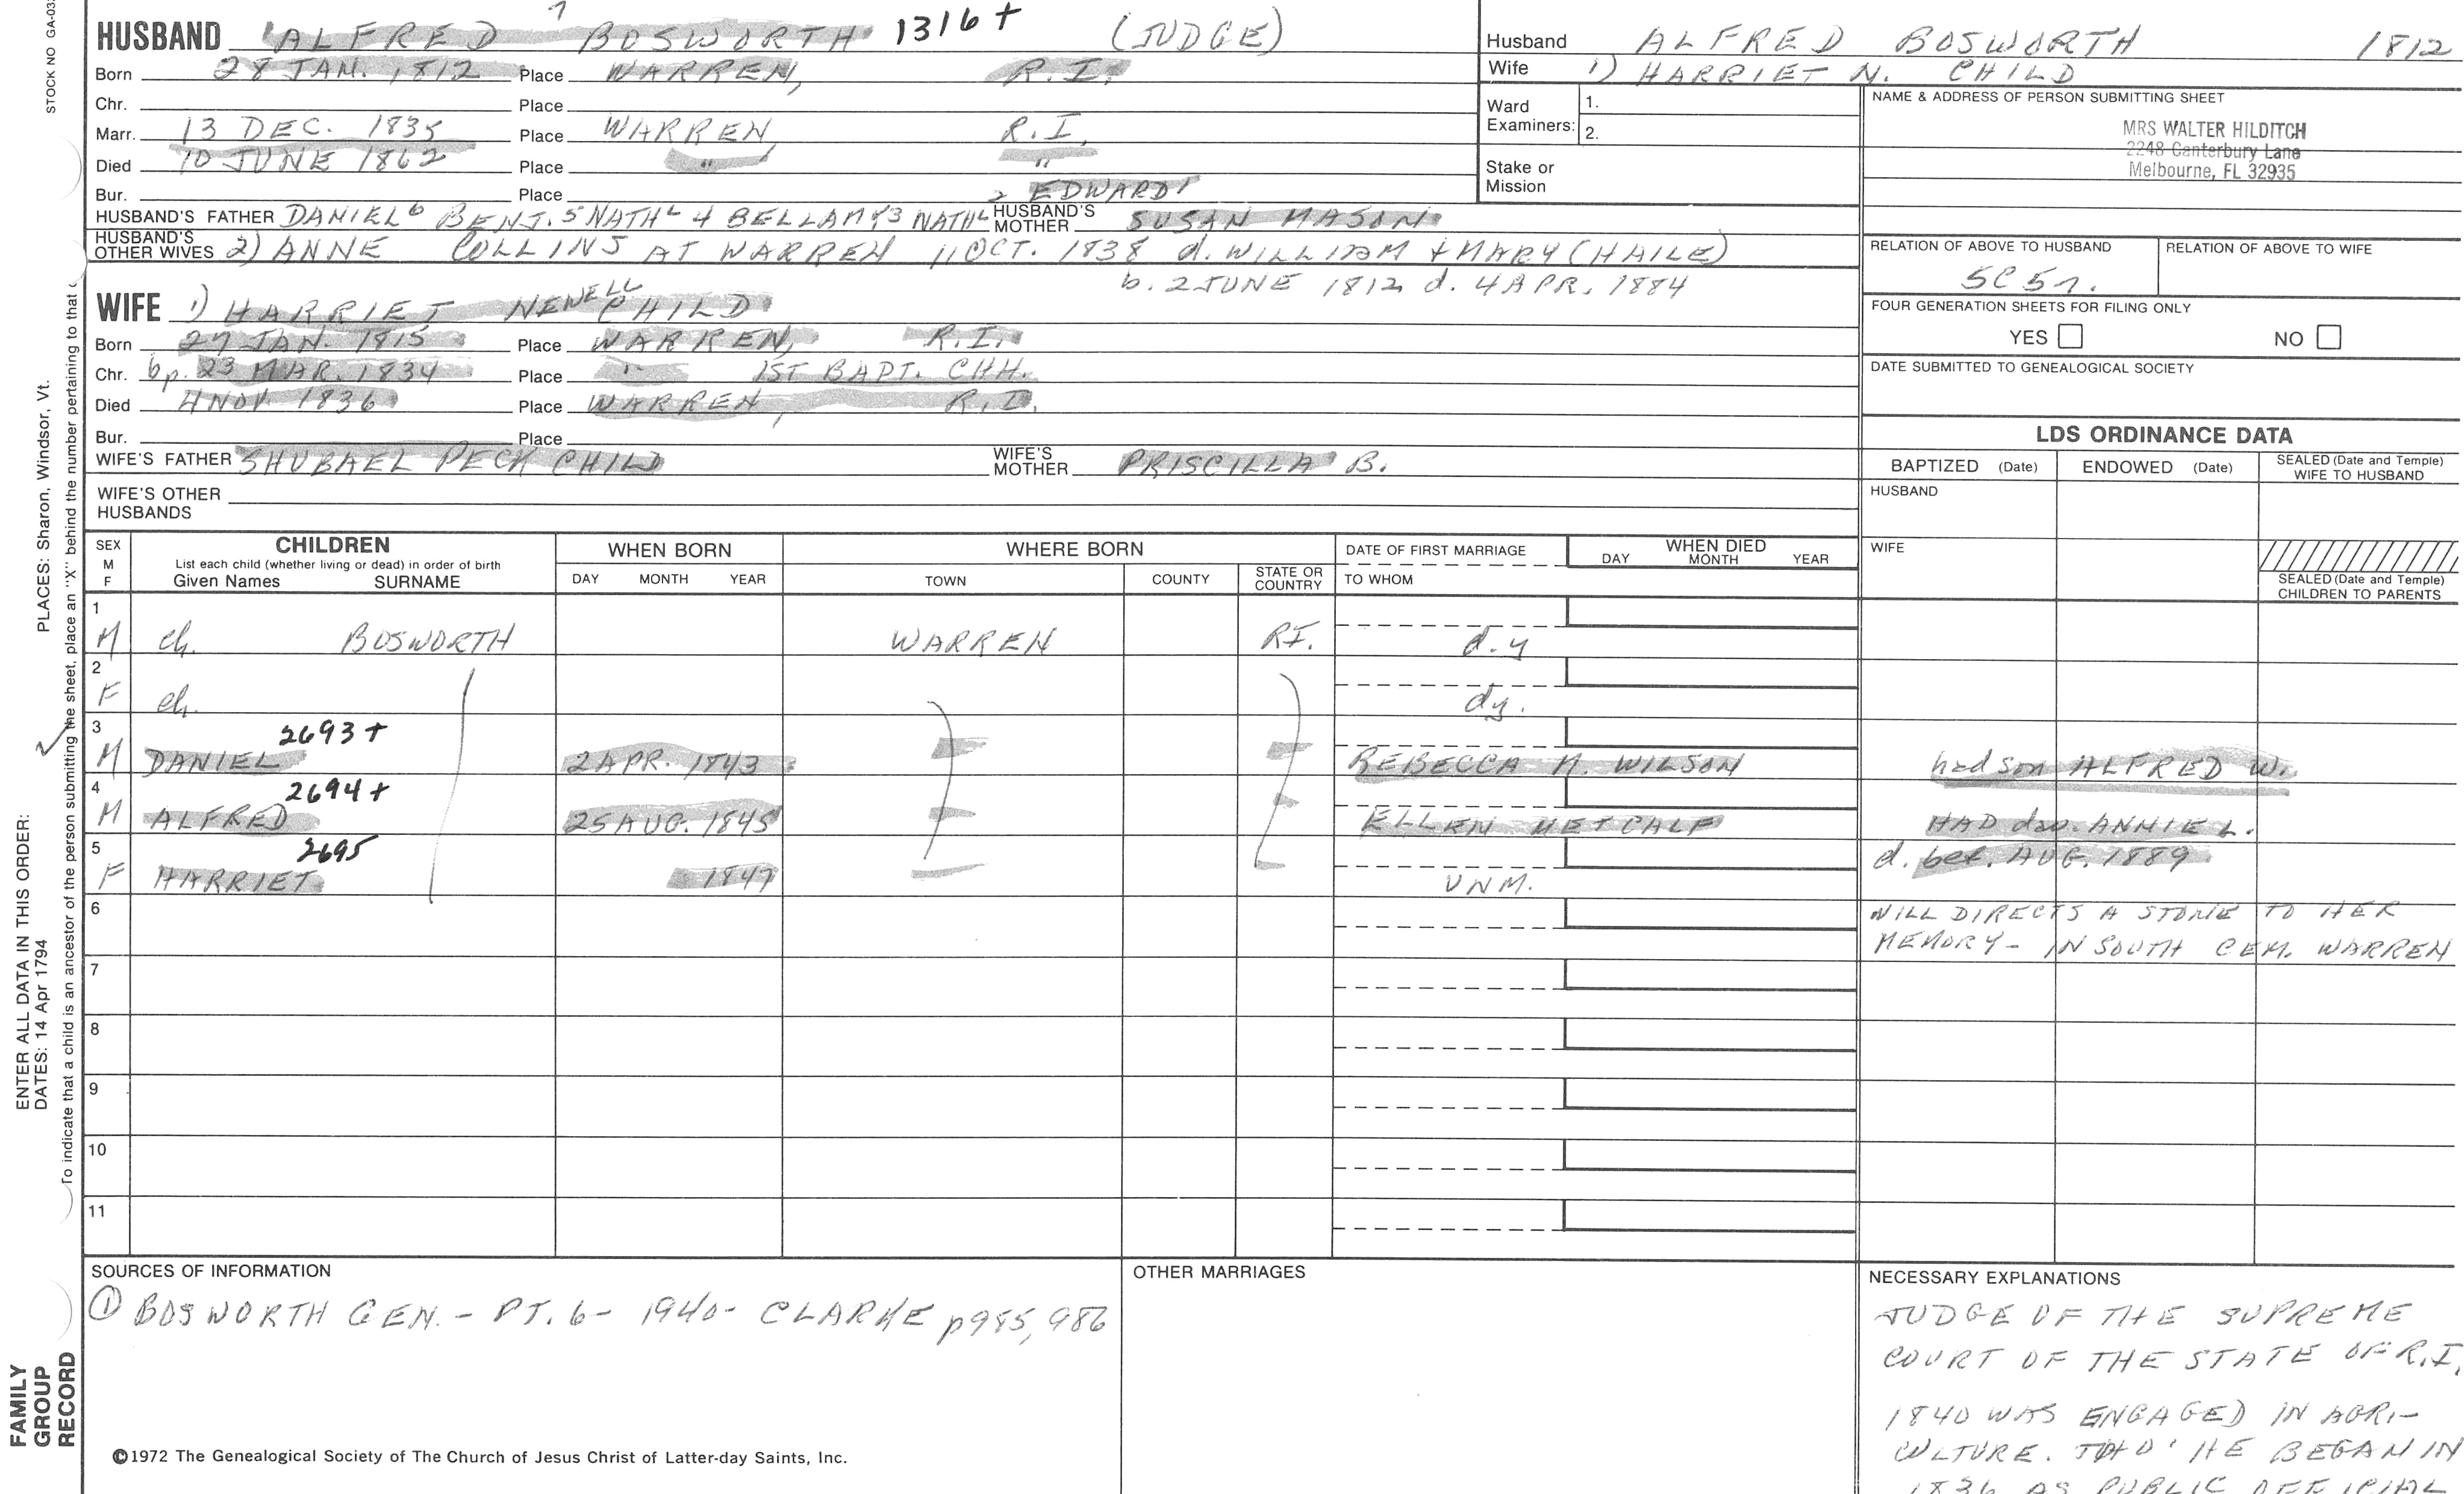 STOCK NO GA-03
HUSBAND ALFRED 7 BOSWORTH 1316+ (JUDGE)
Born 28 JAN. 1812 Place WARREN, R.I.
Chr. Place
Marr. 13 DEC. 1835 Place WARREN, R.I.
Died 10 JUNE 1862 Place " "
Bur. Place
2 EDWARD1
HUSBAND'S FATHER DANIEL6 BENJ.5 NATHL 4 BELLAMY3 NATHL HUSBAND'S MOTHER SUSAN MASON
HUSBAND'S OTHER WIVES 2) ANNE COLLINS AT WARREN 11 OCT. 1838 d. WILLIAM + MARY (HAILE)
b. 2 JUNE 1812 d. 4 APR. 1884
WIFE 1) HARRIET NEWELL CHILD
Born 27 JAN. 1815 Place WARREN, R.I.
Chr. bp. 23 MAR. 1834 Place " 1ST BAPT. CHH.
Died 4 NOV. 1836 Place WARREN, R.I.
Bur. Place
WIFE'S FATHER SHUBAEL PECK CHILD WIFE'S MOTHER PRISCILLA B.
WIFE'S OTHER HUSBANDS
Husband ALFRED BOSWORTH 1812
Wife 1) HARRIET N. CHILD
Ward Examiners: 1.
2.
Stake or Mission
NAME & ADDRESS OF PERSON SUBMITTING SHEET
MRS WALTER HILDITCH
2248 Canterbury Lane
Melbourne, FL 32935
RELATION OF ABOVE TO HUSBAND RELATION OF ABOVE TO WIFE
5C5r.
FOUR GENERATION SHEETS FOR FILING ONLY
YES NO
DATE SUBMITTED TO GENEALOGICAL SOCIETY
LDS ORDINANCE DATA
BAPTIZED (Date) ENDOWED (Date) SEALED (Date and Temple) WIFE TO HUSBAND
HUSBAND
WIFE
SEALED (Date and Temple) CHILDREN TO PARENTS
SEX M F CHILDREN WHEN BORN WHERE BORN DATE OF FIRST MARRIAGE WHEN DIED
List each child (whether living or dead) in order of birth
Given Names SURNAME DAY MONTH YEAR TOWN COUNTY STATE OR COUNTRY TO WHOM DAY MONTH YEAR
1 M ch. BOSWORTH WARREN R.I. d.y
2 F ch. dy.
3 M DANIEL 2693+ 2 APR. 1843 REBECCA N. WILSON had son ALFRED W.
4 M ALFRED 2694+ 25 AUG. 1845 ELLEN METCALF HAD dau. ANNIE L.
5 F HARRIET 2695 1847 UNM. d. bef. AUG. 1889
6 WILL DIRECTS A STONE TO HER
MEMORY - IN SOUTH CEM. WARREN
7
8
9
10
11
SOURCES OF INFORMATION
① BOSWORTH GEN. - PT. 6 - 1940 - CLARKE p985, 986
OTHER MARRIAGES
NECESSARY EXPLANATIONS
JUDGE OF THE SUPREME
COURT OF THE STATE OF R.I.
1840 WAS ENGAGED IN AGRI-
CULTURE. THO' HE BEGAN IN
1836 AS PUBLIC OFFICIAL
©1972 The Genealogical Society of The Church of Jesus Christ of Latter-day Saints, Inc.
PLACES: Sharon, Windsor, Vt.
To indicate that a child is an ancestor of the person submitting the sheet, place an "X" behind the number pertaining to that c
ENTER ALL DATA IN THIS ORDER:
DATES: 14 Apr 1794
FAMILY
GROUP
RECORD